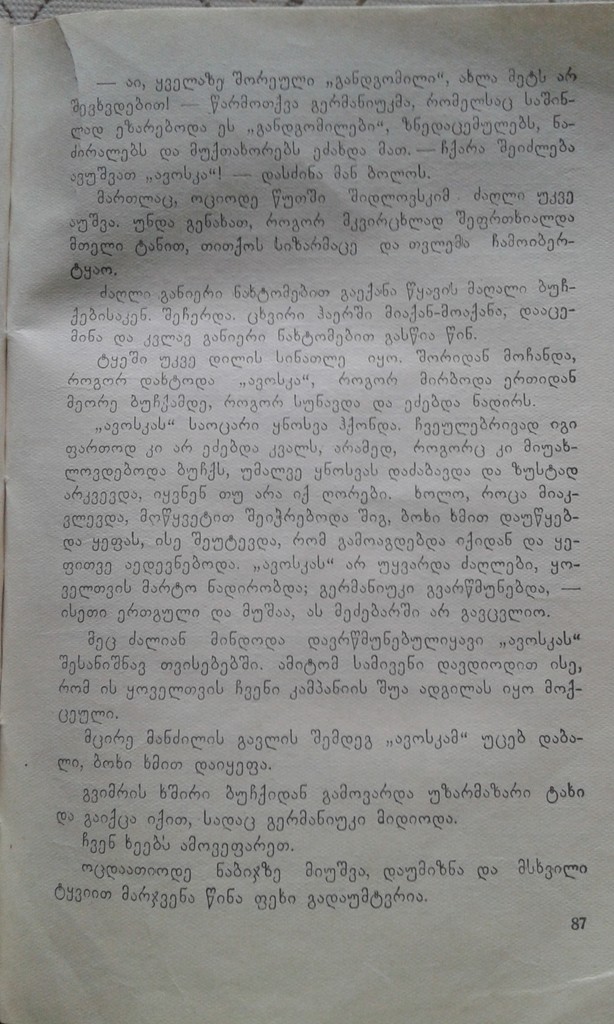 — აი, ყველაზე შორეული „განდგომილი“, ახლა მეტს არ
შევხვდებით! — წარმოთქვა გერმანიუკმა, რომელსაც საშინ-
ლად ეზარებოდა ეს „განდგომილები“, ზნედაცემულებს, ნა-
ძირალებს და მუქთახორებს ეძახდა მათ. — ჩქარა შეიძლება
ავუშვათ „ავოსკა“! — დასძინა მან ბოლოს.
მართლაც, ოციოდე წუთში შიდლოვსკიმ ძაღლი უკვე
აუშვა. უნდა გენახათ, როგორ მკვირცხლად შეფრთხიალდა
მთელი ტანით, თითქოს სიზარმაცე და თვლემა ჩამოიბერ-
ტყაო.
ძაღლი განიერი ნახტომებით გაექანა წყავის მაღალი ბუჩ-
ქებისაკენ. შეჩერდა. ცხვირი ჰაერში მიაქან-მოაქანა, დააცე-
მინა და კვლავ განიერი ნახტომებით გასწია წინ.
ტყეში უკვე დილის სინათლე იყო. შორიდან მოჩანდა,
როგორ დახტოდა „ავოსკა“, როგორ მირბოდა ერთიდან
მეორე ბუჩქამდე, როგორ სუნავდა და ეძებდა ნადირს.
„ავოსკას“ საოცარი ყნოსვა ჰქონდა. ჩვეულებრივად იგი
ფართოდ კი არ ეძებდა კვალს, არამედ, როგორც კი მიუახ-
ლოვდებოდა ბუჩქს, უმალვე ყნოსვას დაძაბავდა და ზუსტად
არკვევდა, იყვნენ თუ არა იქ ღორები. ხოლო, როცა მიაკ-
ვლევდა, მოწყვეტით შეიჭრებოდა შიგ, ბოხი ხმით დაუწყებ-
და ყეფას, ისე შეუტევდა, რომ გამოაგდებდა იქიდან და ყე-
ფითვე აედევნებოდა. „ავოსკას“ არ უყვარდა ძაღლები, ყო-
ველთვის მარტო ნადირობდა; გერმანიუკი გვარწმუნებდა, —
ისეთი ერთგული და მუშაა, ას მეძებარში არ გავცვლიო.
მეც ძალიან მინდოდა დავრწმუნებულიყავი „ავოსკას“
შესანიშნავ თვისებებში. ამიტომ სამივენი დავდიოდით ისე,
რომ ის ყოველთვის ჩვენი კამპანიის შუა ადგილას იყო მოქ-
ცეული.
მცირე მანძილის გავლის შემდეგ „ავოსკამ“ უცებ დაბა-
ლი, ბოხი ხმით დაიყეფა.
გვიმრის ხშირი ბუჩქიდან გამოვარდა უზარმაზარი ტახი
და გაიქცა იქით, სადაც გერმანიუკი მიდიოდა.
ჩვენ ხეებს ამოვეფარეთ.
ოცდაათიოდე ნაბიჯზე მიუშვა, დაუმიზნა და მსხვილი
ტყვიით მარჯვენა წინა ფეხი გადაუმტვრია.
87